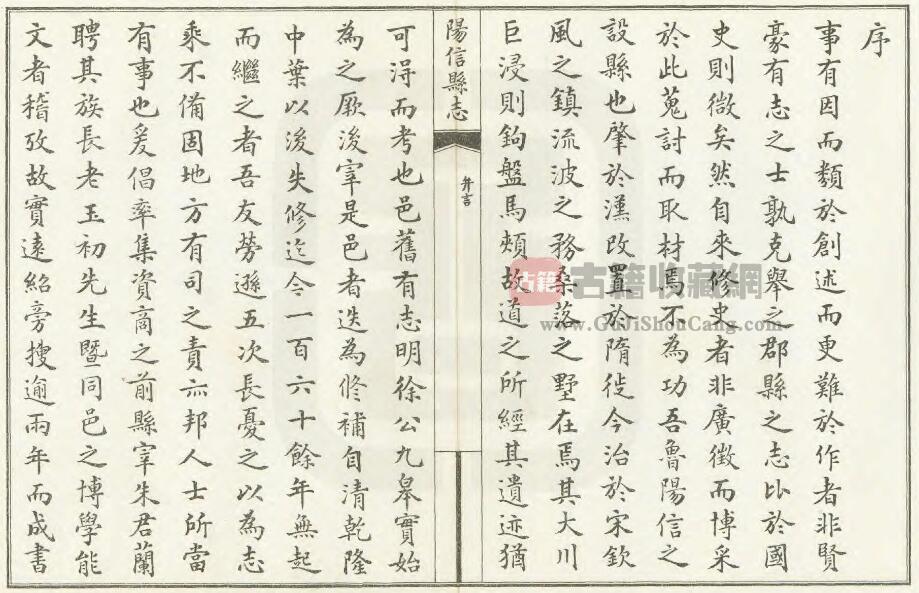 序
事有因而類於創述而更難於作者非賢
豪有志之士孰克舉之郡縣之志比於國
史則微矣然自來修史者非廣徵而博采
於此蒐討而取材焉不為功吾魯陽信之
設縣也肇於漢改置於隋徙今治於宋欽
風之鎮流波之務桑落之墅在焉其大川
巨浸則鉤盤馬頰故道之所經其遺迹猶
陽信縣志
弁言
可淂而考也邑舊有志明徐公九皋實始
為之厥後宰是邑者迭為修補自清乾隆
中葉以後失修迄今一百六十餘年無起
而繼之者吾友勞遜五次長憂之以為志
乘不備固地方有司之責亦邦人士所當
有事也爰倡率集資商之前縣宰朱君蘭
聘其族長老玉初先生暨同邑之博學能
文者稽攷故實遠紹旁搜逾兩年而成書
古籍
古籍收藏網
www.GuJiShouCang.com